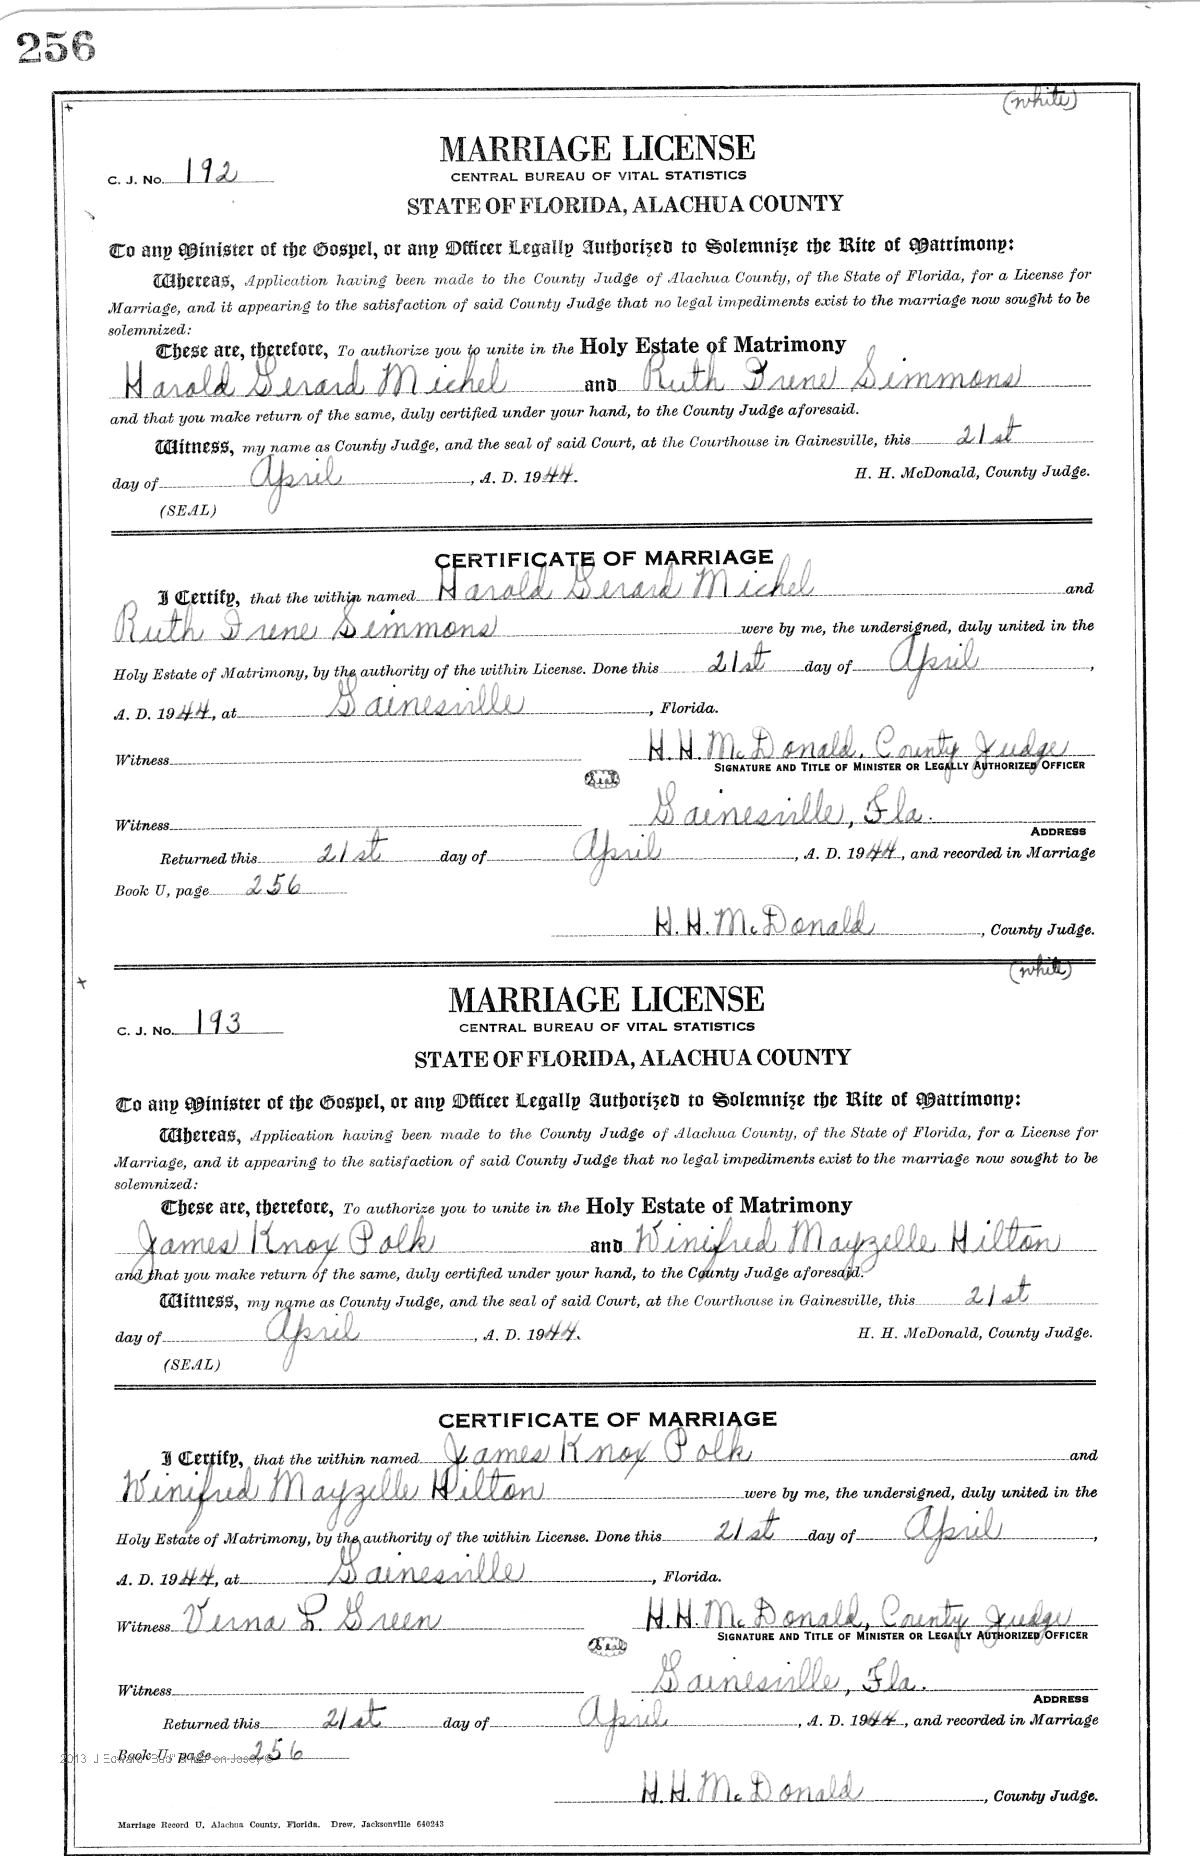 256
(white)
MARRIAGE LICENSE
C. J. No. 192
CENTRAL BUREAU OF VITAL STATISTICS
STATE OF FLORIDA, ALACHUA COUNTY
To any Minister of the Gospel, or any Officer Legally Authorized to Solemnize the Rite of Matrimony:
Whereas, Application having been made to the County Judge of Alachua County, of the State of Florida, for a License for
Marriage, and it appearing to the satisfaction of said County Judge that no legal impediments exist to the marriage now sought to be
solemnized:
These are, therefore, To authorize you to unite in the Holy Estate of Matrimony
Harold Gerard Michel and Ruth Irene Simmons
and that you make return of the same, duly certified under your hand, to the County Judge aforesaid.
Witness, my name as County Judge, and the seal of said Court, at the Courthouse in Gainesville, this 21st
day of April, A. D. 1944. H. H. McDonald, County Judge.
(SEAL)
CERTIFICATE OF MARRIAGE
I Certify, that the within named Harold Gerard Michel and
Ruth Irene Simmons were by me, the undersigned, duly united in the
Holy Estate of Matrimony, by the authority of the within License. Done this 21st day of April,
A. D. 1944, at Gainesville, Florida.
Witness H. H. McDonald, County Judge
SIGNATURE AND TITLE OF MINISTER OR LEGALLY AUTHORIZED OFFICER
Seal
Witness Gainesville, Fla.
ADDRESS
Returned this 21st day of April, A. D. 1944, and recorded in Marriage
Book U, page 256
H. H. McDonald, County Judge.
(white)
MARRIAGE LICENSE
C. J. No. 193
CENTRAL BUREAU OF VITAL STATISTICS
STATE OF FLORIDA, ALACHUA COUNTY
To any Minister of the Gospel, or any Officer Legally Authorized to Solemnize the Rite of Matrimony:
Whereas, Application having been made to the County Judge of Alachua County, of the State of Florida, for a License for
Marriage, and it appearing to the satisfaction of said County Judge that no legal impediments exist to the marriage now sought to be
solemnized:
These are, therefore, To authorize you to unite in the Holy Estate of Matrimony
James Knox Polk and Winifred Mayzelle Hilton
and that you make return of the same, duly certified under your hand, to the County Judge aforesaid.
Witness, my name as County Judge, and the seal of said Court, at the Courthouse in Gainesville, this 21st
day of April, A. D. 1944. H. H. McDonald, County Judge.
(SEAL)
CERTIFICATE OF MARRIAGE
I Certify, that the within named James Knox Polk and
Winifred Mayzelle Hilton were by me, the undersigned, duly united in the
Holy Estate of Matrimony, by the authority of the within License. Done this 21st day of April,
A. D. 1944, at Gainesville, Florida.
Witness Verna L. Green H. H. McDonald, County Judge
SIGNATURE AND TITLE OF MINISTER OR LEGALLY AUTHORIZED OFFICER
Seal
Witness Gainesville, Fla.
ADDRESS
Returned this 21st day of April, A. D. 1944, and recorded in Marriage
Book U, page 256
2013 J Edward
H. H. McDonald, County Judge.
Marriage Record U, Alachua County, Florida. Drew, Jacksonville 640243